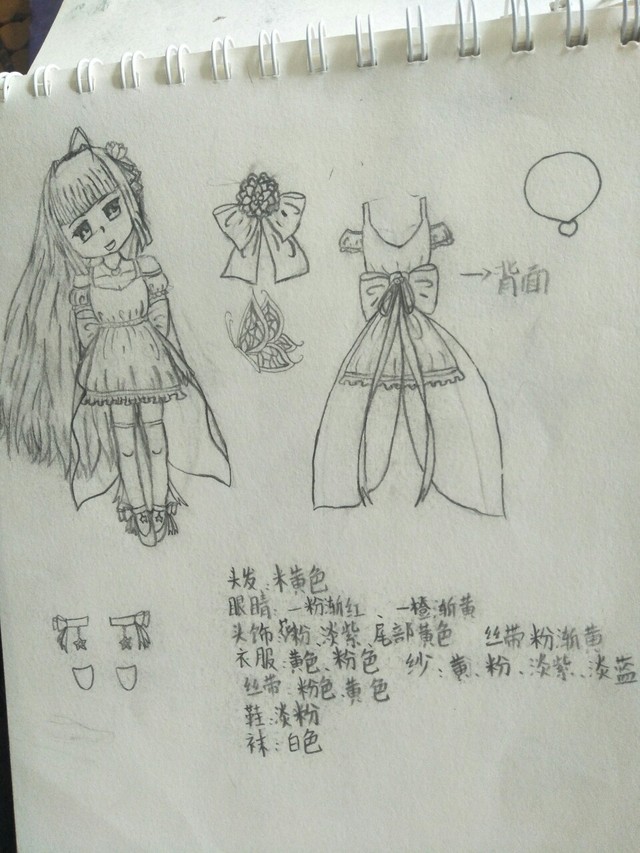 →背面
头发:米黄色
眼睛:一粉渐红、一橙渐黄
头饰 粉、淡紫、尾部黄色 丝带粉渐黄
衣服:黄色、粉色 纱:黄、粉、淡紫、淡蓝
丝带:粉色、黄色
鞋:淡粉
袜:白色